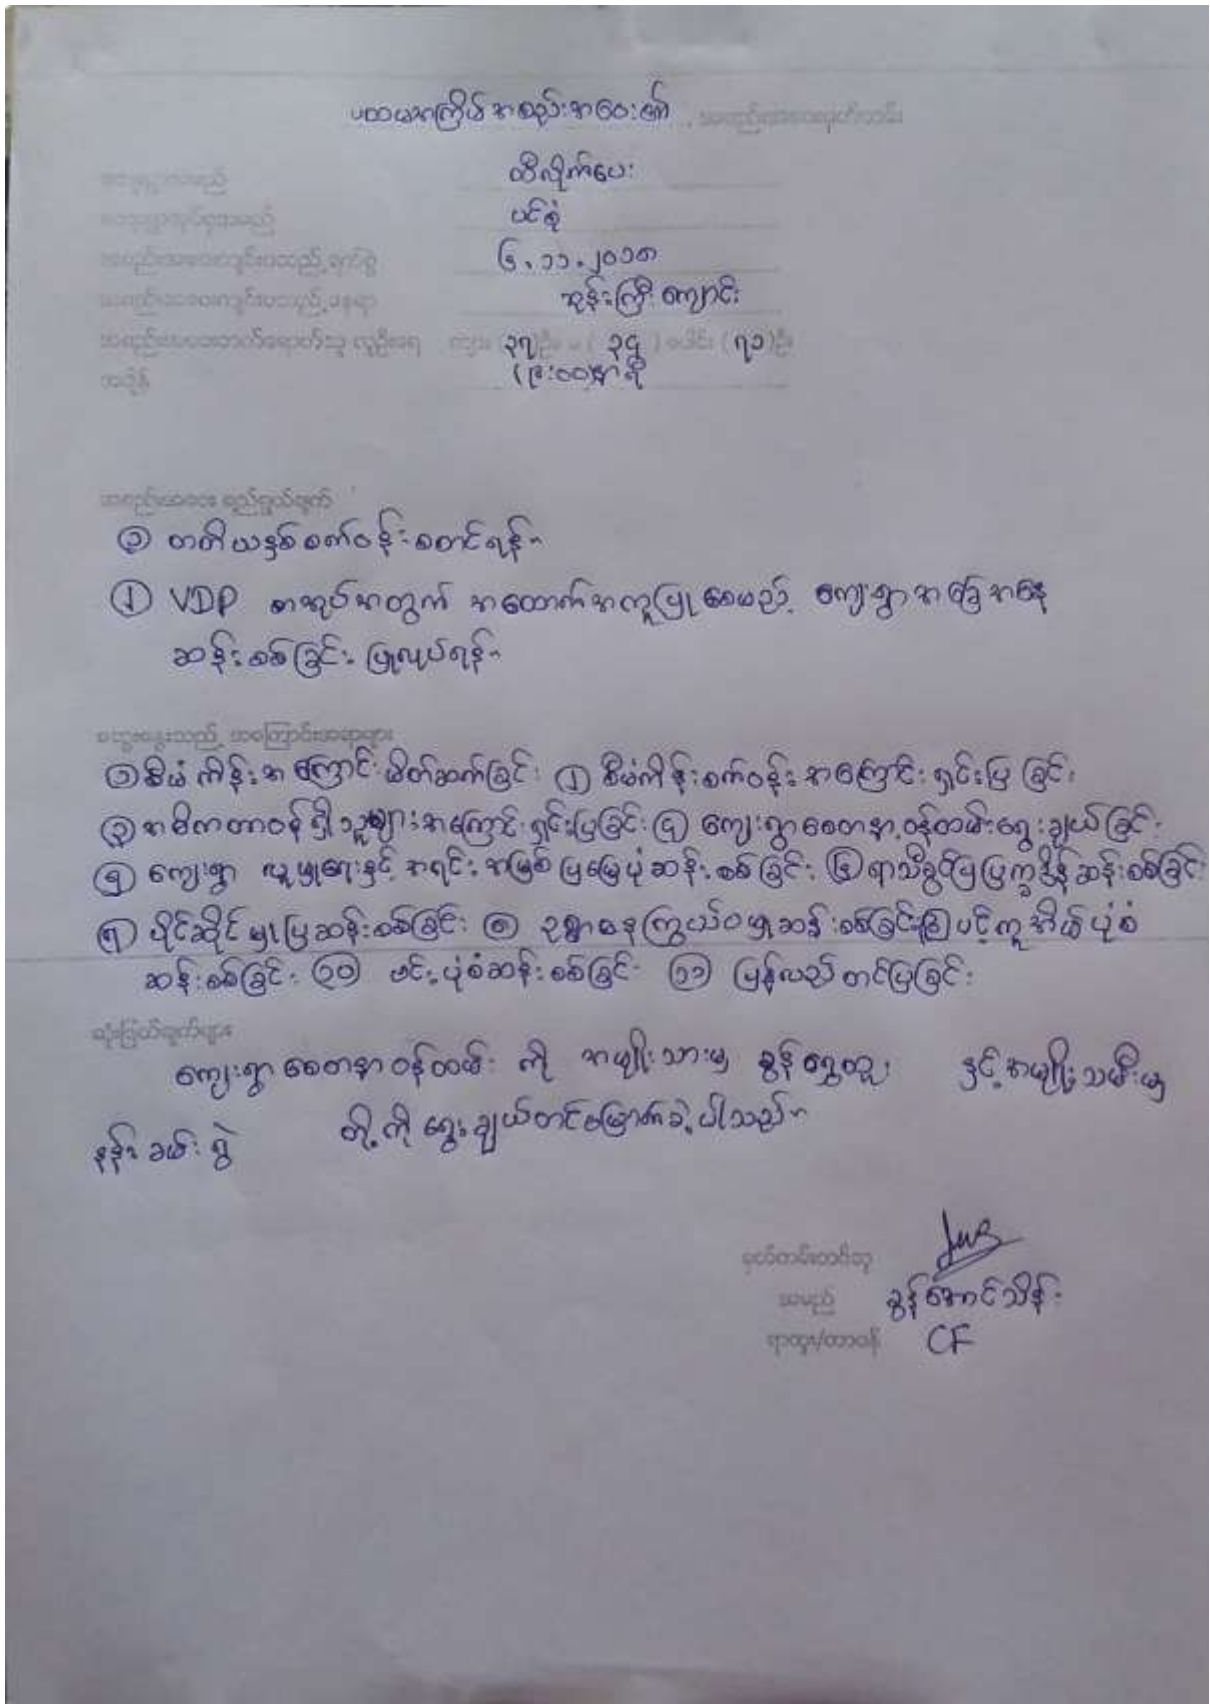 ပထမအကြိမ်အစည်းအဝေး၏ အစည်းအဝေးမှတ်တမ်း
ကျေးရွာအမည် ထီလိုက်ပေး
ကျေးရွာအုပ်စုအမည် ပင်စုံ
အစည်းအဝေးကျင်းပသည့်ရက်စွဲ ၆.၁၁.၂၀၁၈
အစည်းအဝေးကျင်းပသည့်နေရာ ဘုန်းကြီးကျောင်း
အစည်းအဝေးတက်ရောက်သူ လူဦးရေ ကျား (၃၇)ဦး မ ( ၃၄ ) ပေါင်း (၇၁)ဦး
အချိန် (၉:၀၀)နာရီ
အစည်းအဝေး ရည်ရွယ်ချက်
၁ တတိယနှစ်စက်ဝန်းစတင်ရန်။
၂ VDP စာအုပ်အတွက် အထောက်အကူပြုစေမည့် ကျေးရွာအခြေအနေ
ဆန်းစစ်ခြင်း ပြုလုပ်ရန်။
ဆွေးနွေးသည့် အကြောင်းအရာများ
၁ စီမံကိန်းအကြောင်းမိတ်ဆက်ခြင်း ၂ စီမံကိန်းစက်ဝန်းအကြောင်းရှင်းပြခြင်း
၃ အဓိကတာဝန်ရှိသူများအကြောင်းရှင်းပြခြင်း ၄ ကျေးရွာစေတနာ့ဝန်ထမ်းရွေးချယ်ခြင်း
၅ ကျေးရွာ လူမှုရေးနှင့် အရင်းအမြစ်ပြမြေပုံဆန်းစစ်ခြင်း ၆ ရာသီခွင်ပြပြက္ခဒိန်ဆန်းစစ်ခြင်း
၇ ပိုင်ဆိုင်မှုပြဆန်းစစ်ခြင်း ၈ ဥစ္စာဓနကြွယ်ဝမှုဆန်းစစ်ခြင်း ၉ ပင့်ကူအိမ်ပုံစံ
ဆန်းစစ်ခြင်း ၁၀ ဗင်းပုံစံဆန်းစစ်ခြင်း ၁၁ ပြန်လည်တင်ပြခြင်း
ဆုံးဖြတ်ချက်များ
ကျေးရွာစေတနာ့ဝန်ထမ်း ကို အမျိုးသားမှ ခွန်ရွှေထူး နှင့် အမျိုးသမီးမှ
နန်းခမ်းရွဲ့ တို့ကို ရွေးချယ်တင်မြှောက်ခဲ့ပါသည်။
မှတ်တမ်းတင်သူ
အမည် ခွန်အောင်သိန်း
ရာထူး/တာဝန် CF